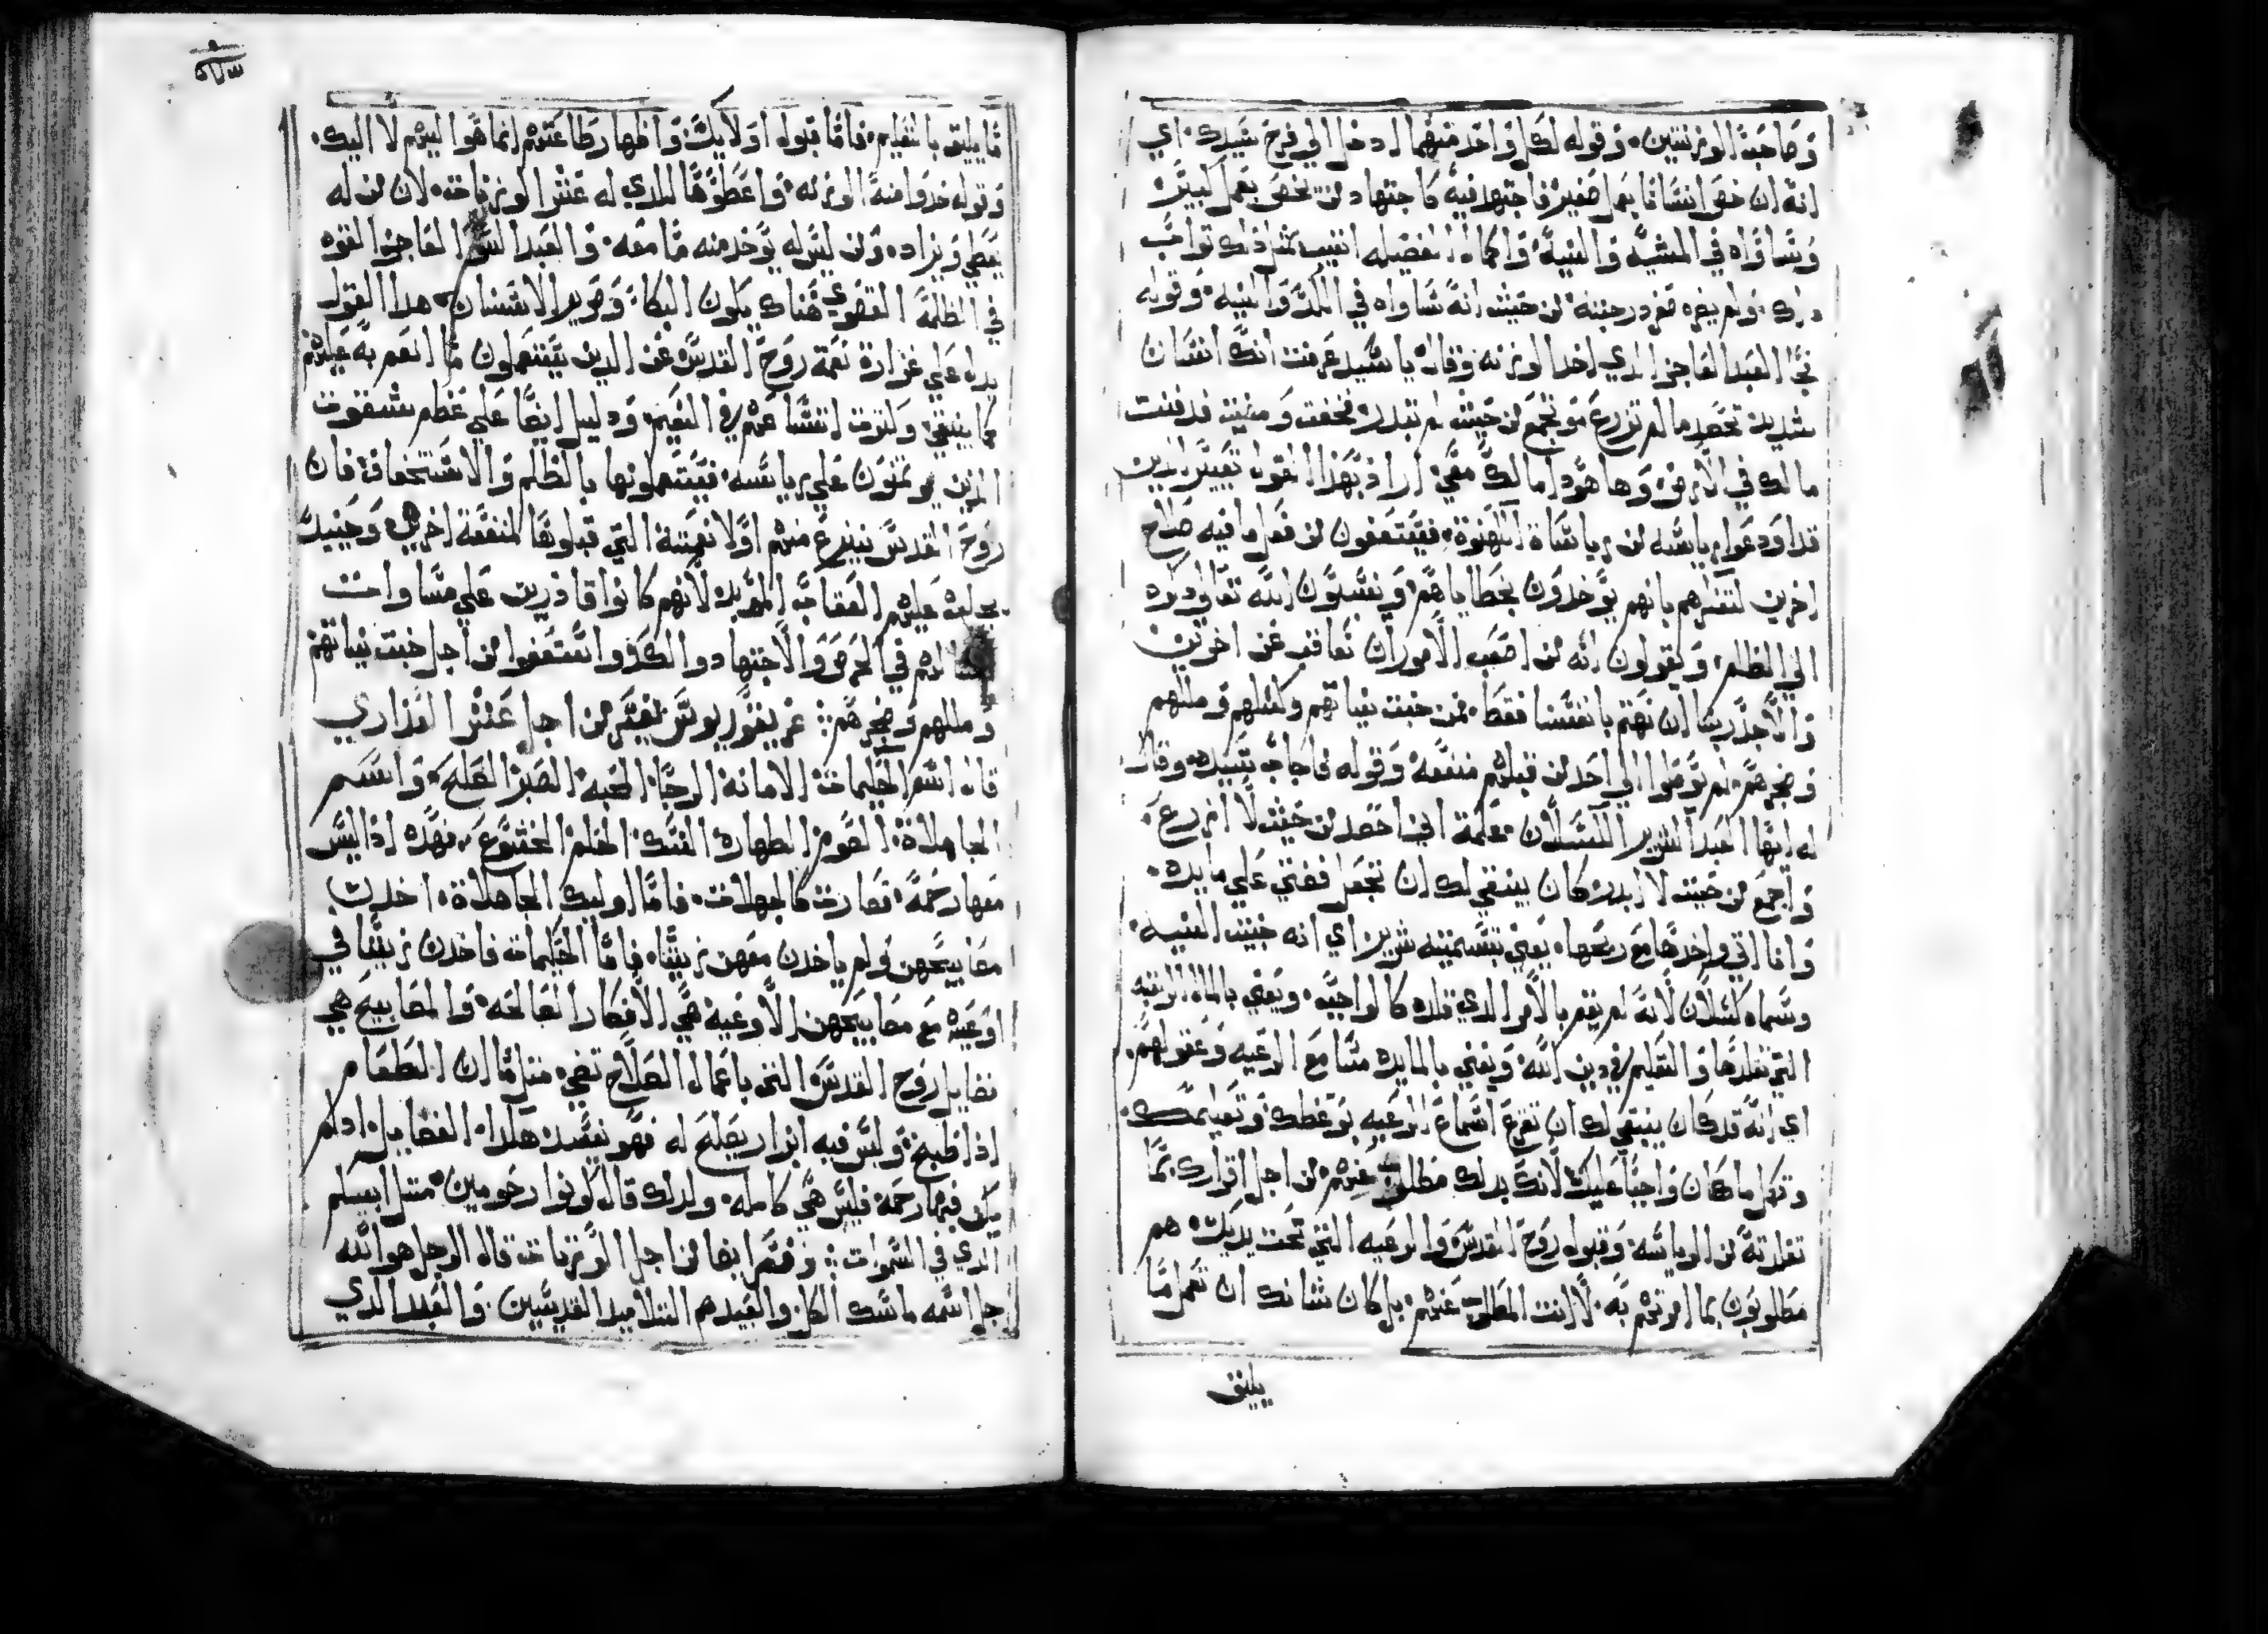 وصاحبة الوزنتين. وقوله لكل واحد منهما ادخل الي فرح سيدك. اي
انه ان خص انسانا بعمل صغير فاجتهد فيه كاجتهاد من يختص بعمل كبير
وساواه في المشيه والنيه. واكمال الفضيله اتيب بمثل ذلك تواب
داك. ولم يضره صغر درجته من حيث انه ساواه في الكد والنيه. وقوله
في العبد العاجز الدي اخد الوزنه وقال يا سيد عرفت انك انسان
شديد تحصد ما لم تزرع وتجمع من حيث لم تبدر فخفت ومضيت فدفنت
مالك في الارض وها هودا مالك معي. اراد بهذا القول تعيير الدين
قد اودعوا رياسه من رياساة الكهنوة. فيستعفون من فعل ما فيه صلاح
اخرين لتفسرهم بانهم يوخدون بخطاياهم وينسبون الله تعالي دكره
الي الظلم. ويقولون انه من اصعب الامور ان نعاقب عن اخرين
والاجدر بنا ان نهتم بانفسنا فقط. فمن خبت نياتهم وكسلهم ومللهم
وضجرهم. لم يوصلوا الي احد من قبلهم منفعه وقوله فاجاب سيده وقال
له ايها العبد الشرير الكسلان علمت اني احصد من حيث لا ازرع.
واجمع من حيث لا ابدر كان ينبغي لك ان تجعل فضتي علي مايده.
وانا اتي واخدها مع ربحها. يعني بتسميته شرير اي انه خبيث النيه.
وسماه كسلان لانه لم يقم بالامر الدي قلده كالواجب. ويعني بالمال الرتبه
التي تقلدها والتعليم في دين الله. ويعني بالمايده مسامع الرعيه وعقولهم.
اي انه قد كان ينبغي لك ان تقرع اسماع الرعيه بوعظك وتعليمك.
وتكمل ما كان واجبا عليك لانك بدلك مطلوب عنهم. من اجل اقرارك بما
تقلدته من الرياسه وقبول روح القدس والرعيه التي تحت يديك. هم
مطلوبون بما امرتهم به. لا انت المطلوب عنهم. بل كان شانك ان تعمر ما
يليق
ما يليق بالتعليم. فاما قبول اولايك واظهار طاعتهم انما هوا ليهم لا اليك.
وقوله خدوا منه الوزنه. واعطوها للدي له عشر الوزنات. لان من له
يعطي ويزاد. ومن ليس له يوخد منه ما معه. والعبد السو العاجز القوه
في الظلمه القصوي هناك يكون البكا. وصرير الاسنان. هدا القول
يدل علي غزارة نعمة روح القدس عن الدين يستعملون ما انعم به عليهم
كما ينبغي وكثرت انتشاعهم في النعيم. ودليل ايضا علي عظم شقوت
الدين يوتمنون علي رياسه. فيستعملونها بالظلم والاستخفاف. فان
روح القدس ينزع منهم اولا نعمته التي قبلوها لمنفعة اخرين. وحينيد
يحل عليهم العقاب المؤبد لانهم كانوا قادرين علي مساوات
امتالهم في الحرص والاجتهاد والكد واستعفوا من اجل خبت نياتهم
ومللهم وضجرهم: غريغوريوس يفسر من اجل عشر العذاري
قال اسم الحكيمات الامانة الرجا. المحبه الصبر الصلح. واسم
الجاهلاة. الصوم الطهارة النسك الحلم الخشوع. فهذه اذا ليس
معها رحمة. فصارت كالجهلات. فاما اوليك الجاهلاة. اخدن
مصابيحهن ولم ياخدن معهن زيتا. فاما الحكيمات فاخدن زيتا في
اوعيته مع مصابيحهن. الاوعيه هي الافكار الصالحه. والمصابيح هي
فضايل روح القدس التي باعمال الصلاح تضي. مثل ما ان الطعام
اذا طبخ. وليس فيه ابزار يصلح له فهو يفسد. هكدا. الفضايل. ادا لم
يكن فيها رحمة فليس هي كامله. ولدلك قال كونوا رحومين. متل ابيكم
الدي في السموات: وفسر ايضا من اجل الوزنات قال الرجل هو الله
جل اسمه ماسك الكل. والعبيد هم التلاميد القديسين. والعبد الدي